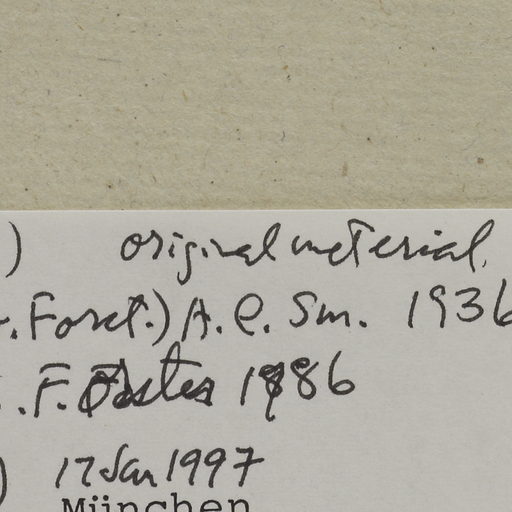 ) original material
.Forst.) A.C. Sm. 1936
. F. Forster 1786
) 17 Jan 1997
München